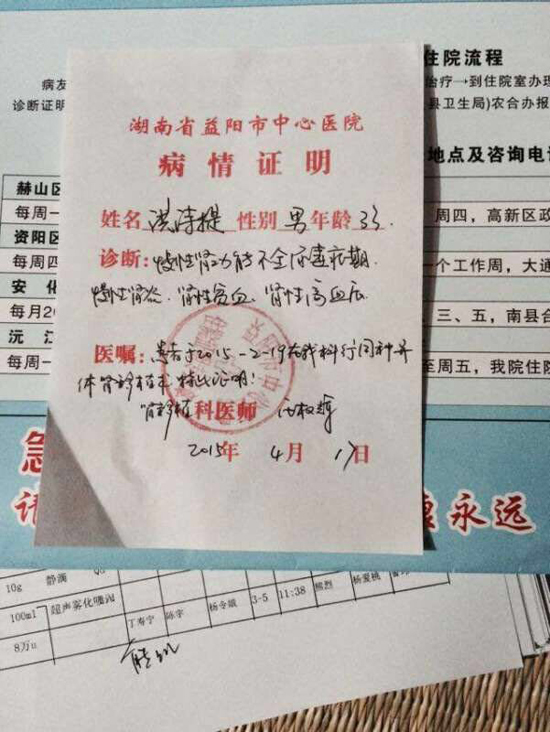 住院流程
病友
治疗→到住院室办理
诊断证明
县卫生局)农合办报
地点及咨询电话
湖南省益阳市中心医院
病情证明
姓名 洪涛提 性别 男 年龄 33.
诊断: 慢性肾功能不全尿毒症期.
慢性肾炎. 肾性贫血. 肾性高血压
医嘱: 患者于2015-2-19在我科行同种异
体肾移植术 特此证明!
肾移植科医师
2015年 4月 17日
赫山区
每周一
周四,高新区政
资阳区
每周四
一个工作周,大通
安 化
每月20
三、五,南县合
沅 江
每周一
至周五,我院住院
急
德永远
10g 静滴
100ml 超声雾化吸入 丁寿宁 陈宇 杨令娥 3-5 11:38 熊烈 杨爱桃
8万u